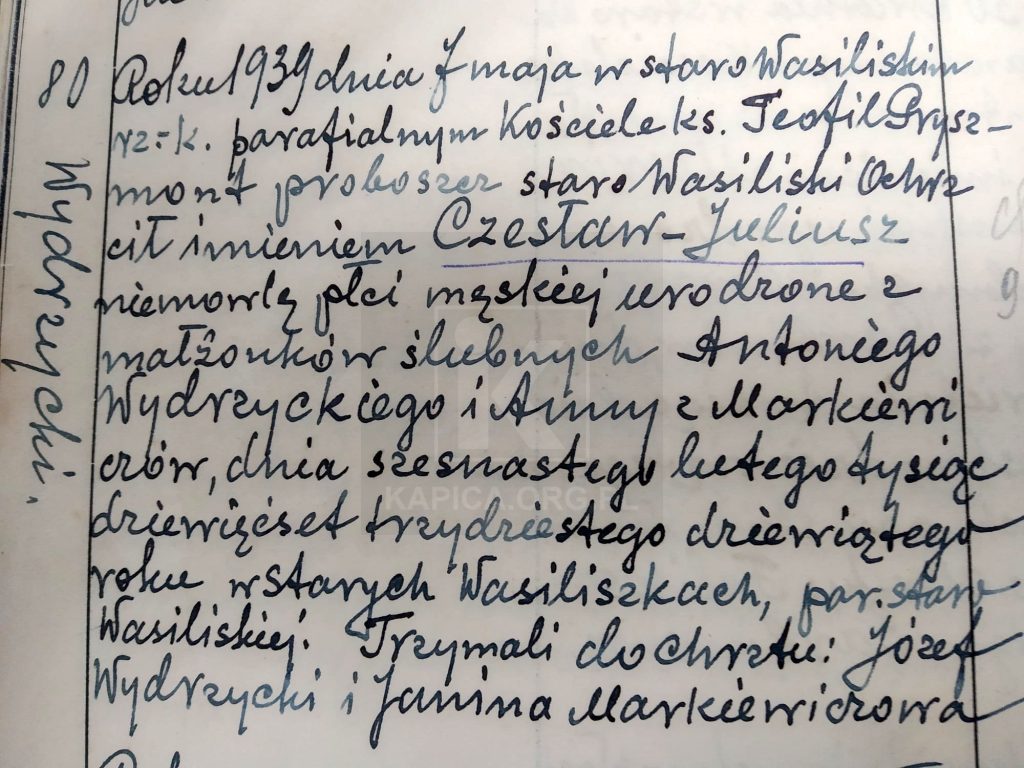 80
Wydrzycki.
Roku 1939 dnia 7 maja w staro Wasiliskim
rz=k. parafialnym Kościele ks. Teofil Prysz-
mont proboszcz staro Wasiliski Ochrz
cił imieniem Czesław-Juliusz
niemowlę płci męskiej urodzone z
małżonków ślubnych Antoniego
Wydrzyckiego i Anny z Markiewi
czów, dnia szesnastego lutego tysiąc
dziewięćset trzydziestego dziewiątego
roku w Starych Wasiliszkach, par. staro
Wasiliskiej. Trzymali do chrztu: Józef
Wydrzycki i Janina Markiewiczowa
KAPICA.ORG.PL